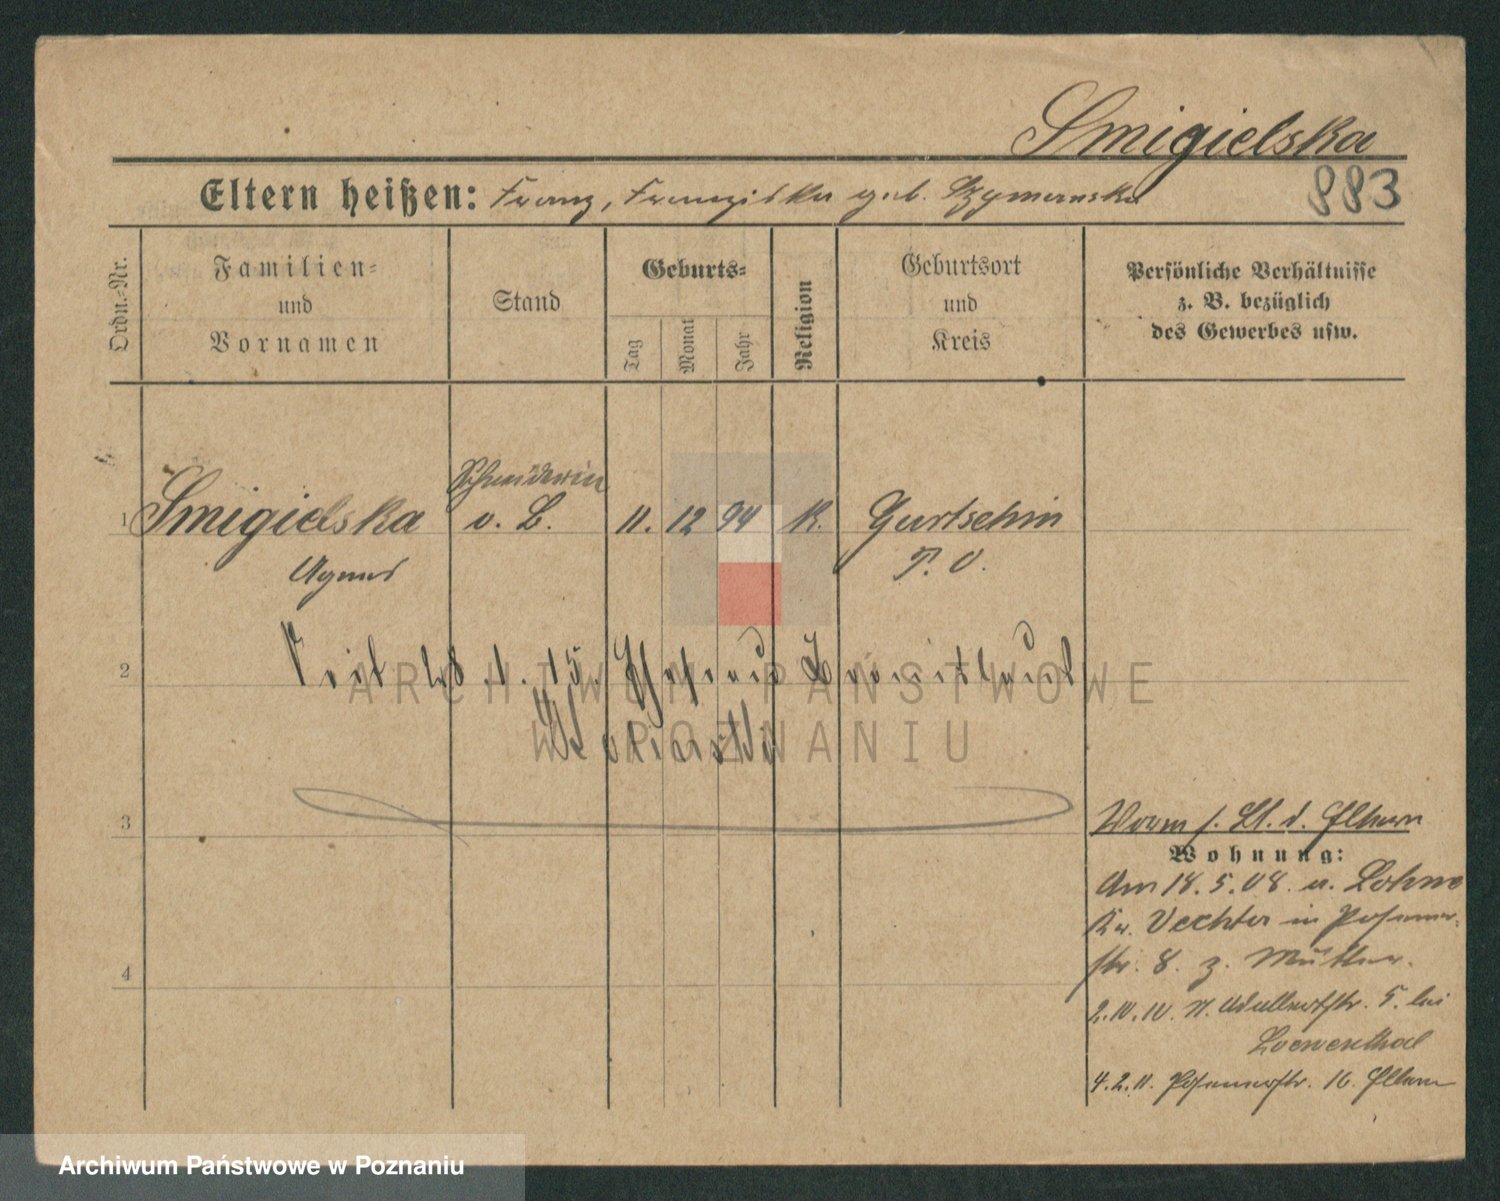 Smigielska
Eltern heißen: Franz, Franziska geb. Szymanska
883
Ordn.-Nr.
Familien-
und
Vornamen
Stand
Geburts-
Tag
Monat
Jahr
Religion
Geburtsort
und
Kreis
Persönliche Verhältnisse
z. B. bezüglich
des Gewerbes usw.
Schneiderin
1 Smigielska v. L. 11. 12 94 K. Gurtschin
Agnes P. O.
2 Seit 28.1.15. Ehefrau
ARCHIWUM PAŃSTWOWE
W POZNANIU
3
4
Vorm s. Bl. d. Eltern
Wohnung:
Am 18.5.08. a. Lohne
Kr. Vechta in Posener-
str. 8. z. Mutter.
2.IV.10. n. Adalbertstr. 5. bei
Loewenthal
4.2.11. Posenerstr. 16. Eltern
Archiwum Państwowe w Poznaniu